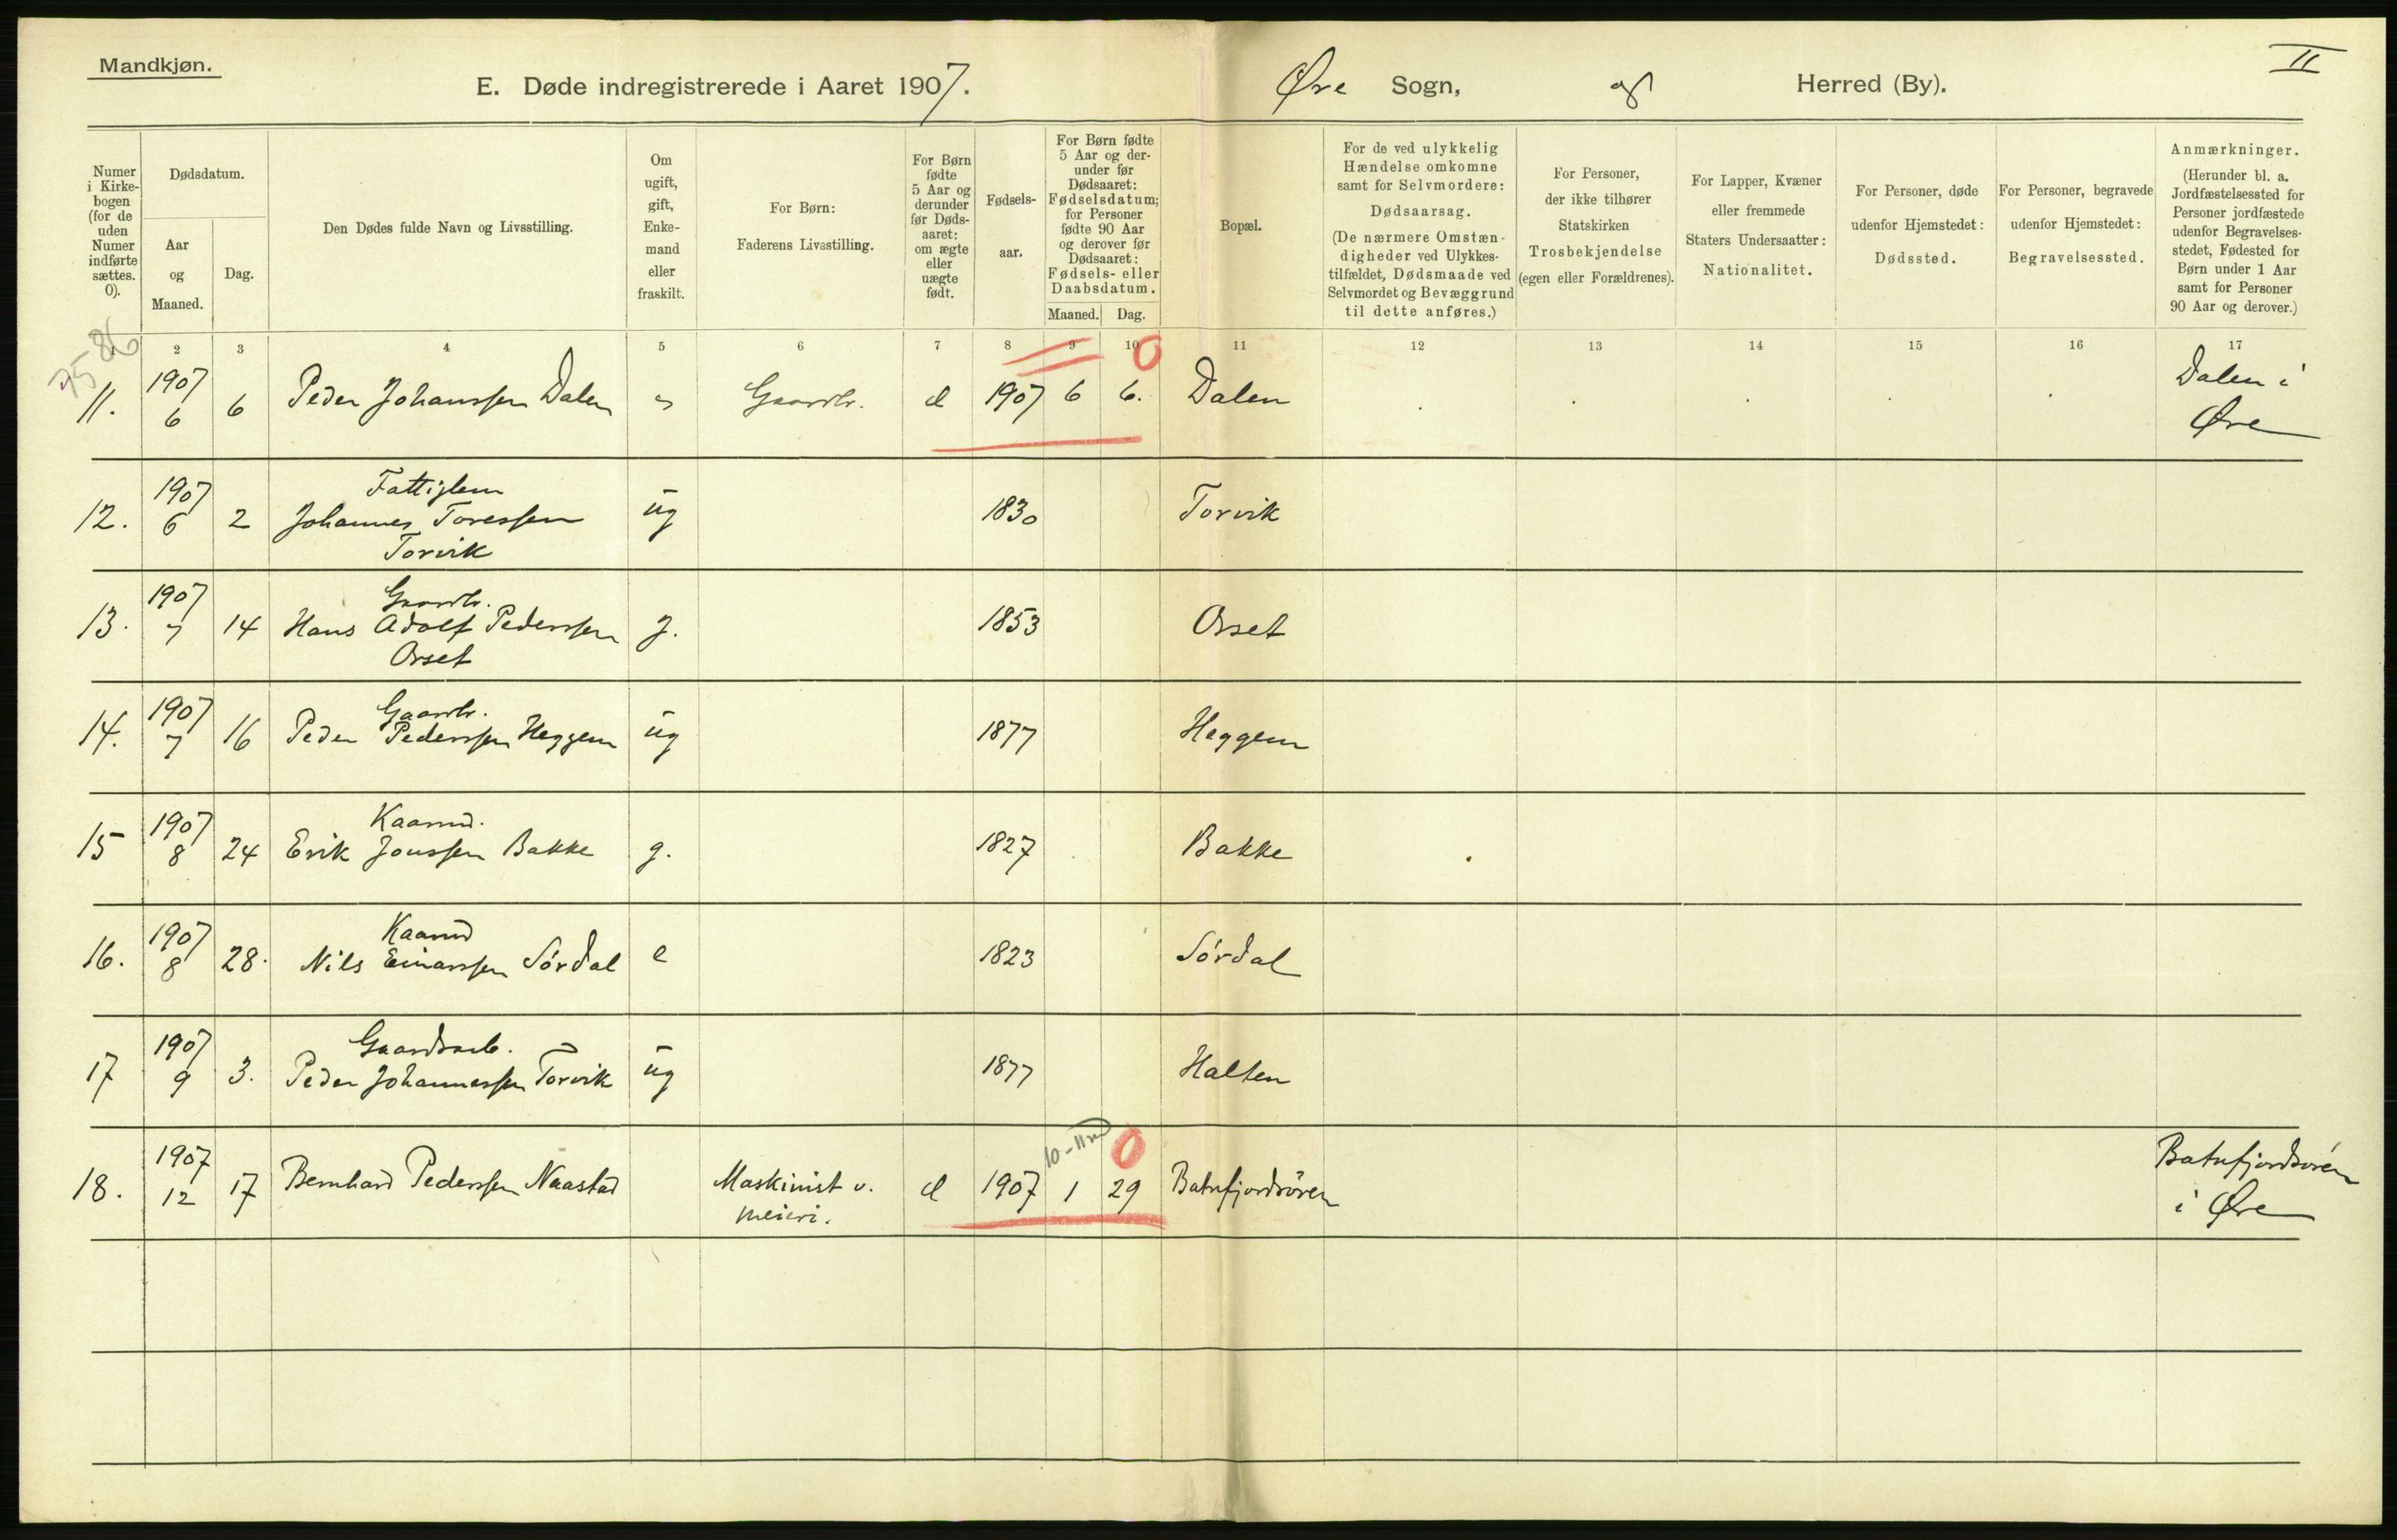 Mandkjøn.
E. Døde indregistrerede i Aaret 1907.
Øre Sogn, og Herred (By).
II
Numer i Kirke-bogen (for de uden Numer indførte sættes. 0).
Dødsdatum.
Aar og Maaned.
Dag.
Den Dødes fulde Navn og Livsstilling.
Om ugift, gift, Enke-mand eller fraskilt.
For Børn: Faderens Livsstilling.
For Børn fødte 5 Aar og derunder før Døds-aaret: om ægte eller uægte født.
Fødsels-aar.
For Børn fødte 5 Aar og der-under før Dødsaaret: Fødselsdatum; for Personer fødte 90 Aar og derover før Dødsaaret: Fødsels- eller Daabsdatum.
Maaned. Dag.
Bopæl.
For de ved ulykkelig Hændelse omkomne samt for Selvmordere: Dødsaarsag. (De nærmere Omstæn-digheder ved Ulykkes-tilfældet, Dødsmaade ved Selvmordet og Bevæggrund til dette anføres.)
For Personer, der ikke tilhører Statskirken Trosbekjendelse (egen eller Forældrenes).
For Lapper, Kvæner eller fremmede Staters Undersaatter: Nationalitet.
For Personer, døde udenfor Hjemstedet: Dødssted.
For Personer, begravede udenfor Hjemstedet: Begravelsessted.
Anmærkninger. (Herunder bl. a. Jordfæstelsessted for Personer jordfæstede udenfor Begravelses-stedet, Fødested for Børn under 1 Aar samt for Personer 90 Aar og derover.)
2 3 4 5 6 7 8 9 10 11 12 13 14 15 16 17
11. 1907 6 6 Peder Johanssen Dalen Gaardbr. 1907 6 6. Dalen Dalen i Øre
12. 1907 6 2 Fattiglem Johannes Toressen Torvik ug 1830 Torvik
13. 1907 7 14 Gaardbr. Hans Adolf Pederssen Orset g. 1853 Orset
14. 1907 7 16 Gaardbr. Peder Pederssen Heggem ug 1877 Heggem
15 1907 8 24 Kaarmd. Erik Jonssen Bakke g. 1827 Bakke
16. 1907 8 28. Kaarmd Nils Einarssen Sørdal e 1823 Sørdal
17 1907 9 3. Gaardsarb. Peder Johannessen Torvik ug 1877 Halten
18. 1907 12 17 Bernhard Pederssen Naastad Maskinist v. meieri. 1907 1 29 Batnfjordsøren Batnfjordsøren i Øre